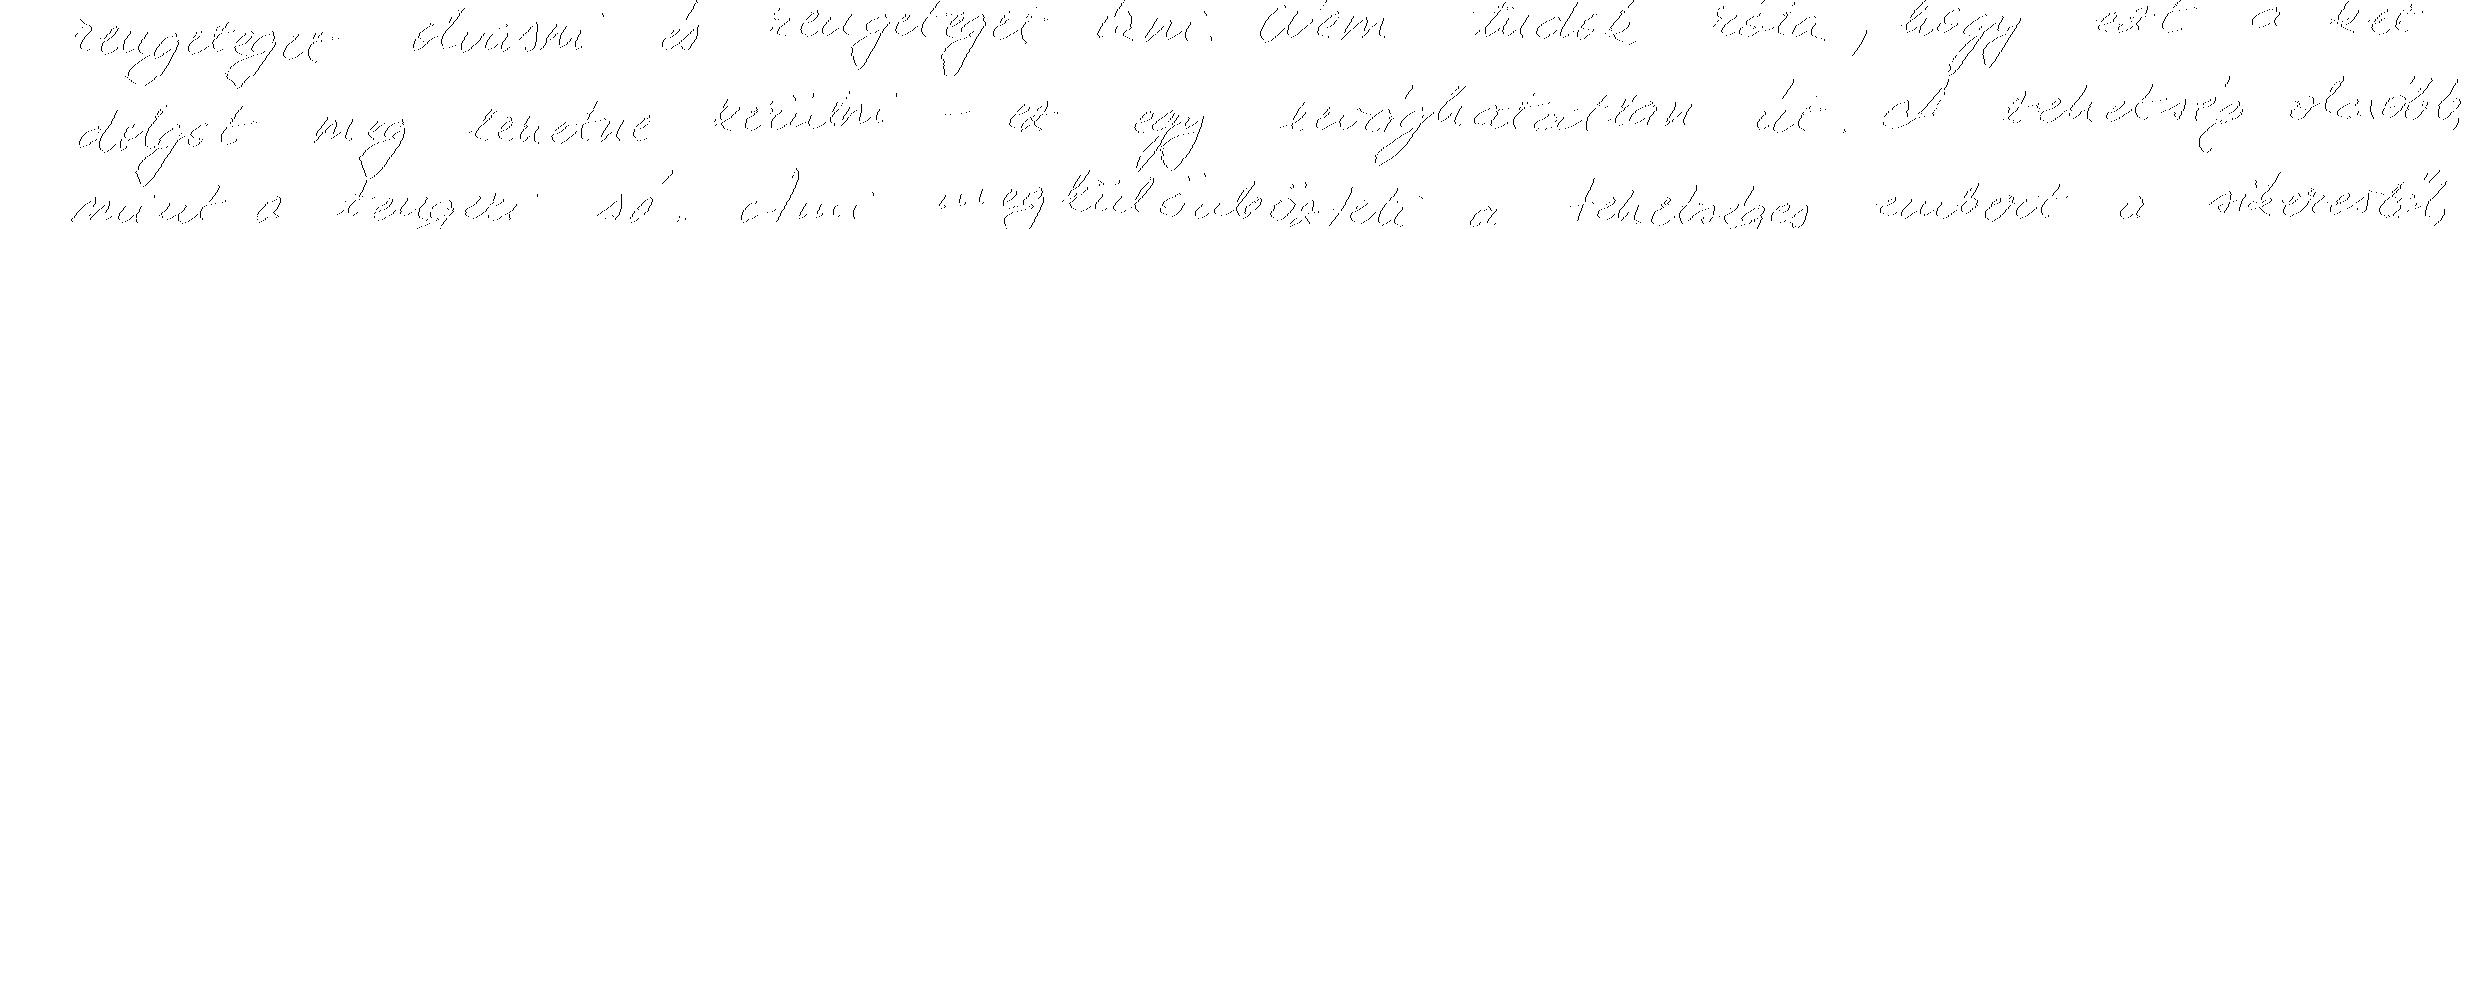 rengeteget olvasni és rengeteget írni. Nem tudok róla, hogy ezt a két
dolgot meg lehetne kerülni - ez egy levághatatlan út. A tehetség olcsóbb,
mint a tengeri só. Ami megkülönbözteti a tehetséges embert a sikerestől,